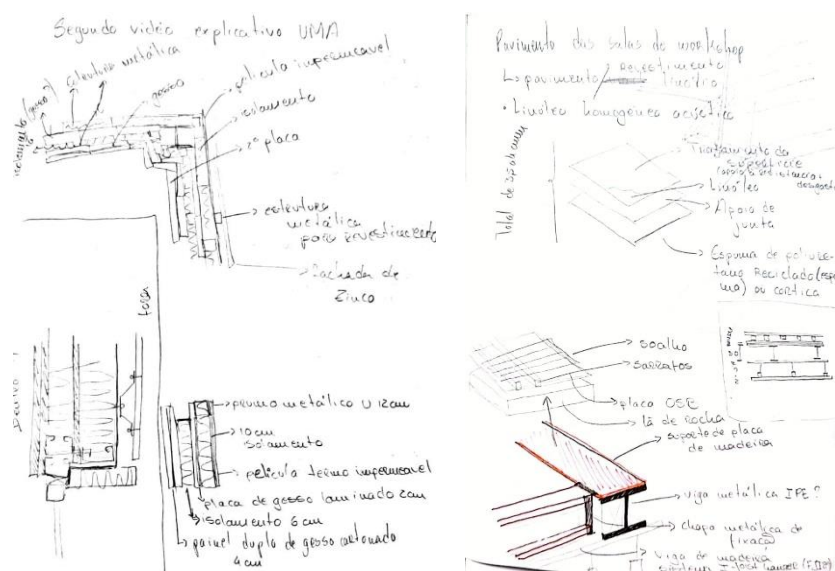 Segundo vídeo explicativo UMA
estrutura metálica
gesso
película impermeável
isolamento
2ª placa
estrutura
metálica
para revestimento
fachada de
Zinco
Dentro
prumo metálico U 12cm
10cm
isolamento
película termo impermeavel
placa de gesso laminado 2cm
isolamento 6cm
painel duplo de gesso
4cm
Pavimento das salas do workshop
revestimento
pavimento
• Linóleo homogéneo acústico
Total de
Tratamento da
superfície
Linóleo
Apoio de
junta
Espuma de
Reciclado
ou cortiça
soalho
sarrafos
placa OSB
lã de rocha
suporte de placa
de madeira
viga metálica IPE?
chapa metálica de
fixação
viga de madeira